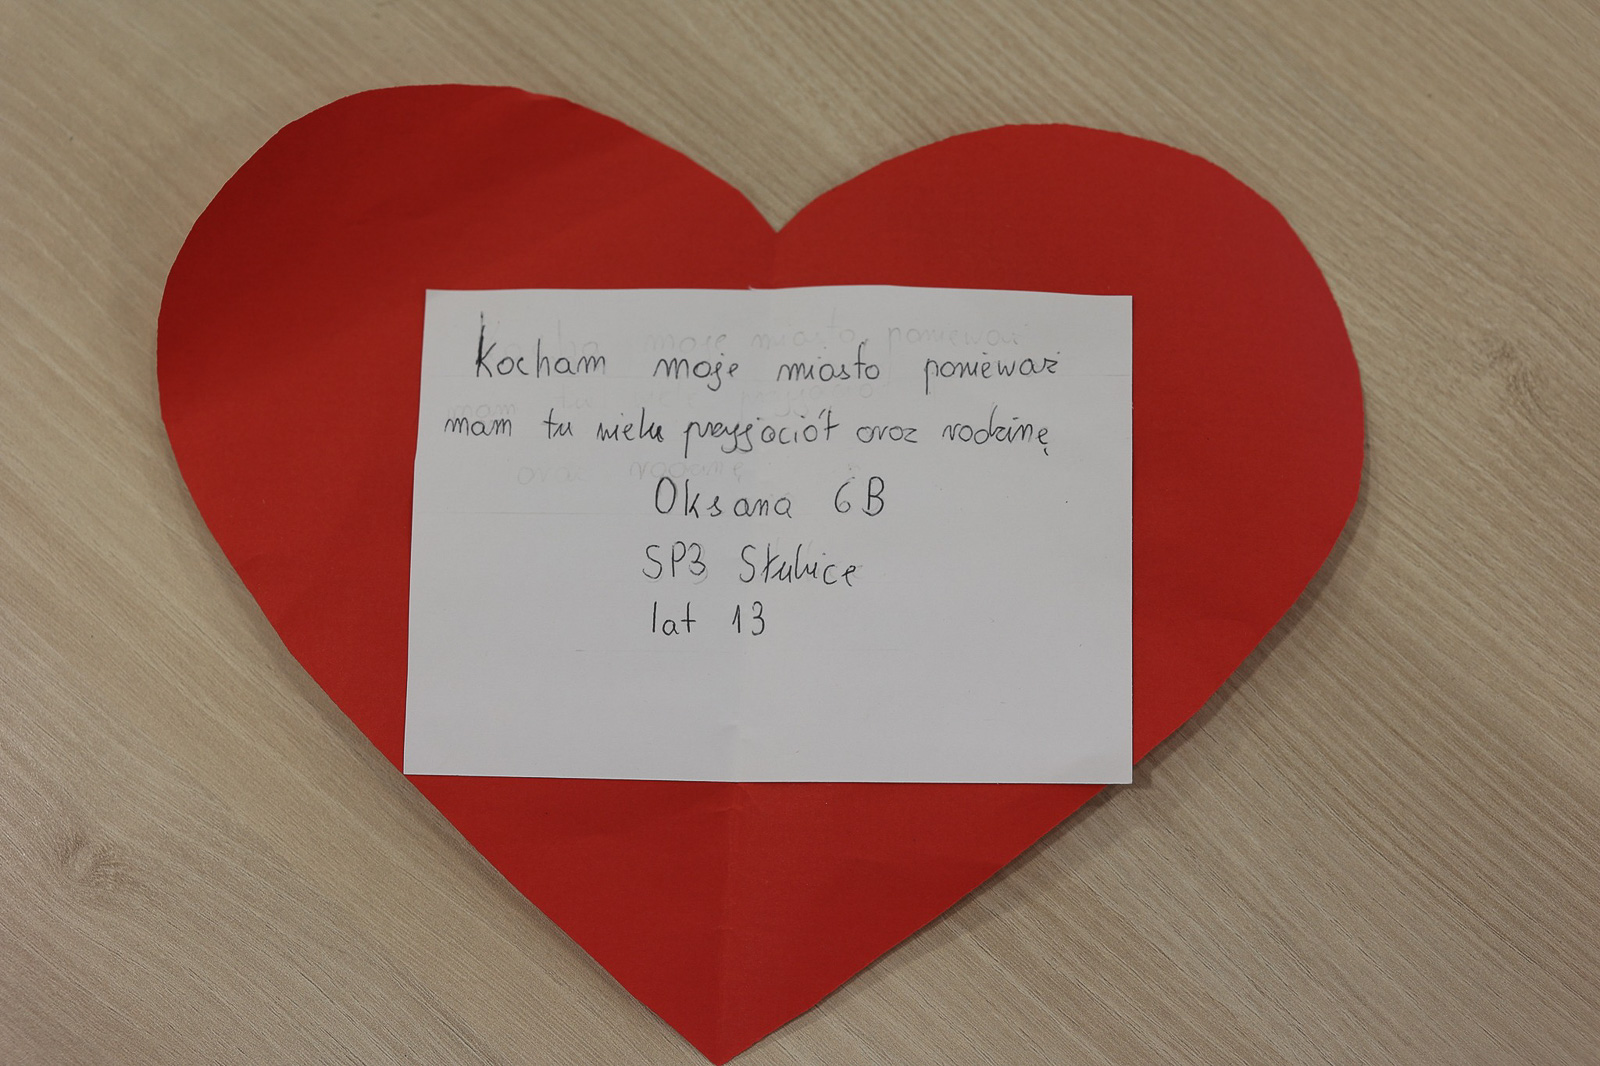 Kocham moje miasto ponieważ
mam tu wielu przyjaciół oraz rodzinę
Oksana 6B
SP3 Słubice
lat 13